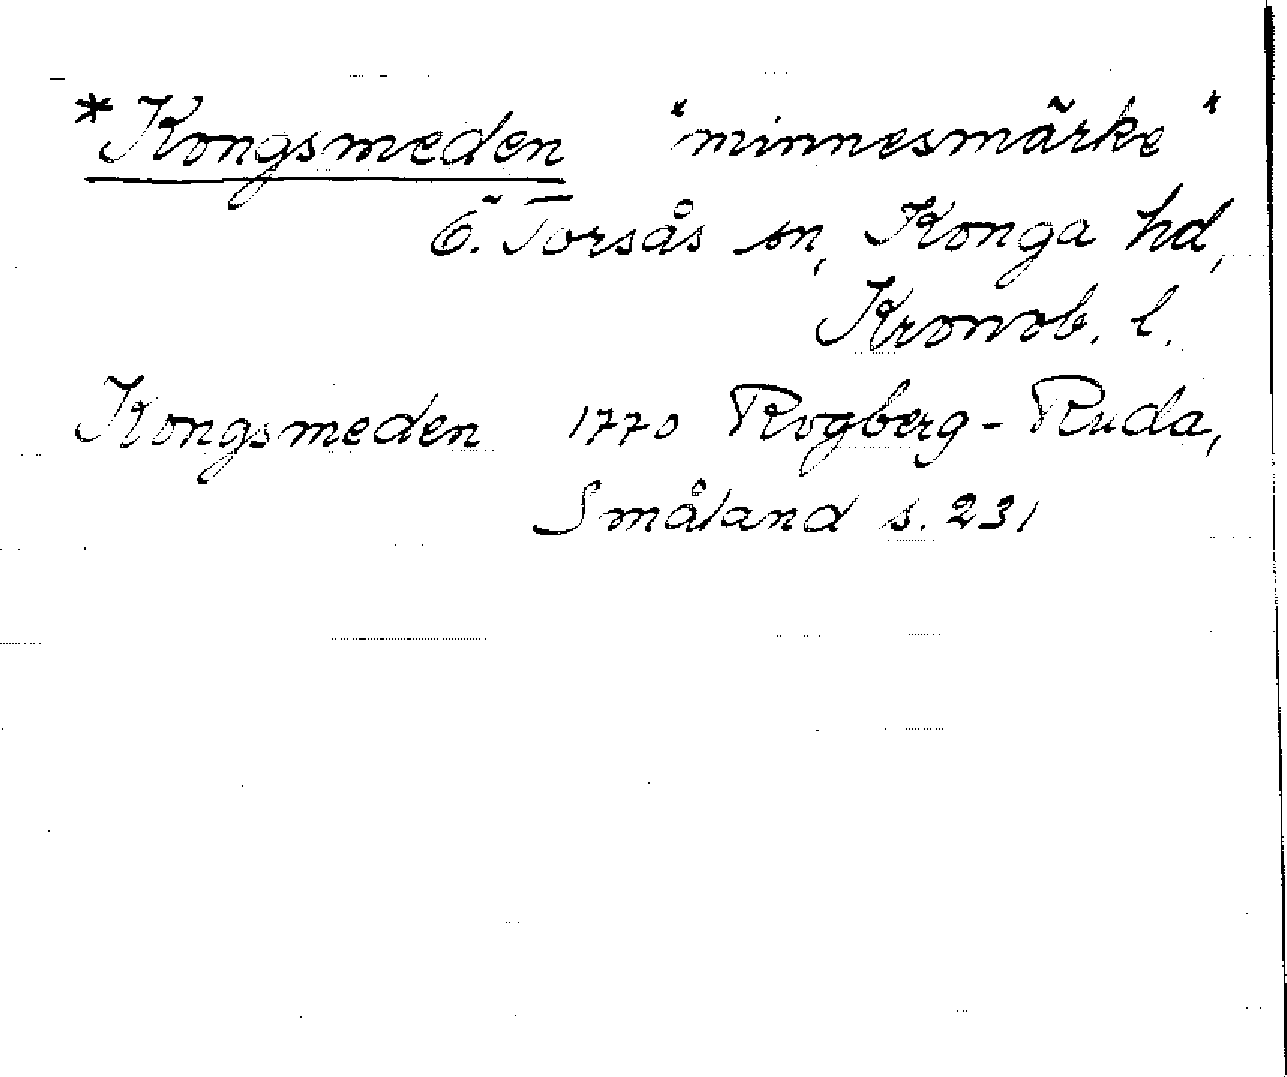 *Kongsmeden "minnesmärke"
Ö. Torsås sn, Konga hd,
Kronob. l.
Kongsmeden 1770 Rogberg-Ruda,
Småland s. 231